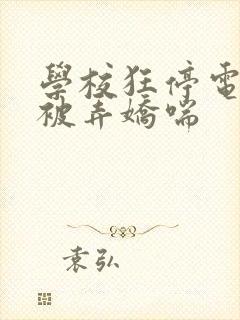 學校狂停電
被弄嬌喘
袁弘